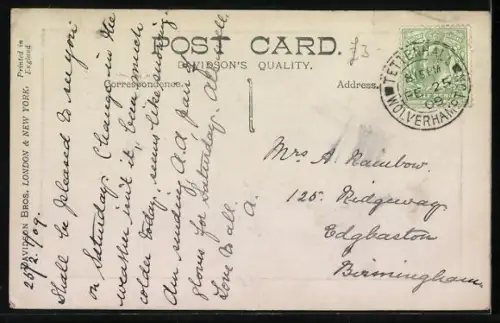 POST CARD.
DAVIDSON'S QUALITY.
Correspondence.
Address.
Printed in
England
DAVIDSON BROS. LONDON & NEW YORK.
25/2/09.
Shall be pleased to see you
on Saturday. Change in the
weather isn't it, been much
colder today, seems like snowing.
Am sending A.A. pair
gloves for Saturday. All well
Love to all.
A.
Mrs A Rainbow.
125. Ridgeway
Edgbaston
Birmingham.
TETTENHALL
FE 25
09
WOLVERHAMPTON